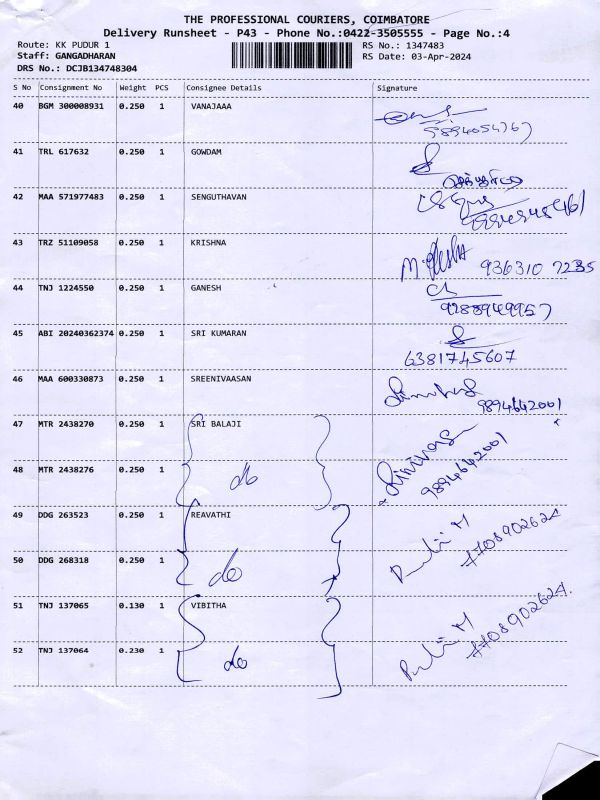 THE PROFESSIONAL COURIERS, COIMBATORE
Delivery Runsheet - P43 - Phone No.:0422-3505555 - Page No.:4
Route: KK PUDUR 1 RS No.: 1347483
Staff: GANGADHARAN RS Date: 03-Apr-2024
DRS No.: DCJB134748304
S No Consignment No Weight PCS Consignee Details Signature
40 BGM 300008931 0.250 1 VANAJAAA
41 TRL 617632 0.250 1 GOWDAM
42 MAA 571977483 0.250 1 SENGUTHAVAN
43 TRZ 51109058 0.250 1 KRISHNA
936310 7235
44 TNJ 1224550 0.250 1 GANESH
9288949957
45 ABI 20240362374 0.250 1 SRI KUMARAN
6381745607
46 MAA 600330873 0.250 1 SREENIVAASAN
9894642001
47 MTR 2438270 0.250 1 SRI BALAJI
48 MTR 2438276 0.250 1 do
9894642001
49 DDG 263523 0.250 1 REAVATHI
50 DDG 268318 0.250 1 do
51 TNJ 137065 0.130 1 VIBITHA
52 TNJ 137064 0.230 1 do